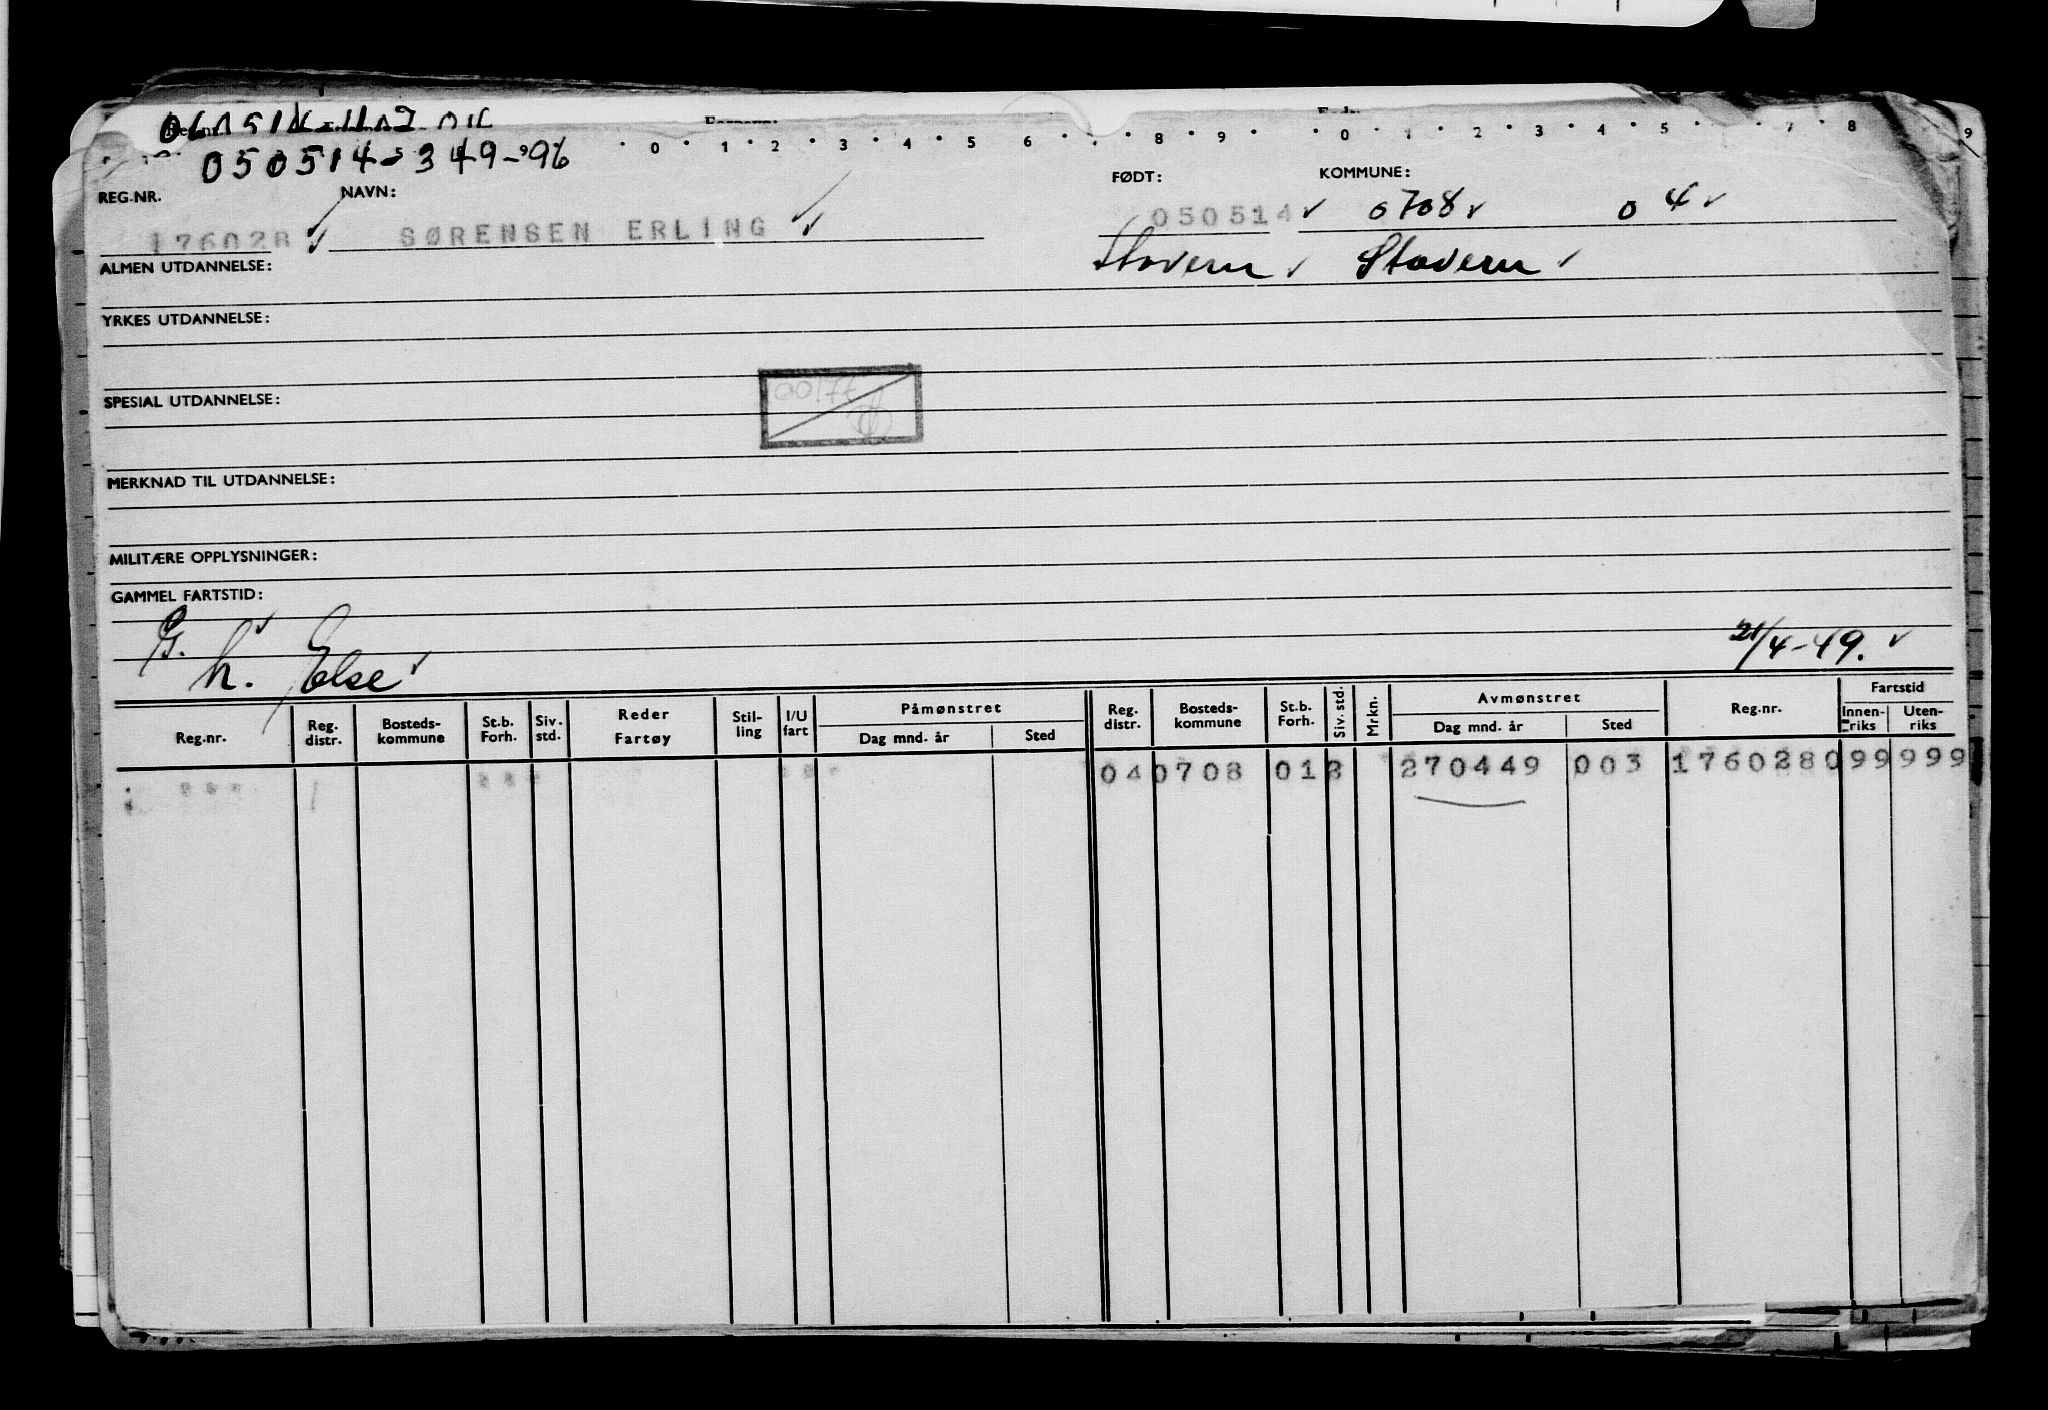 050514-349-96
0 1 2 3 4 5 6 8 9 0 1 2 3 4 5 6 7 8 9
REG.NR. NAVN: FØDT: KOMMUNE:
176028 SØRENSEN ERLING 050514 0708 04
ALMEN UTDANNELSE: Stavern Stavern
YRKES UTDANNELSE:
SPESIAL UTDANNELSE:
MERKNAD TIL UTDANNELSE:
MILITÆRE OPPLYSNINGER:
GAMMEL FARTSTID:
G.
h. Else 21/4-49.
Reg.nr. Reg. distr. Bosteds-kommune St.b. Forh. Siv. std. Reder Fartøy Stil-ling I/U fart Påmønstret Dag mnd. år Sted Reg. distr. Bosteds-kommune St.b. Forh. Siv. std. Mrkn. Avmønstret Dag mnd. år Sted Reg.nr. Fartstid Innen-riks Uten-riks
040708 012 270449 003 1760280 99 999